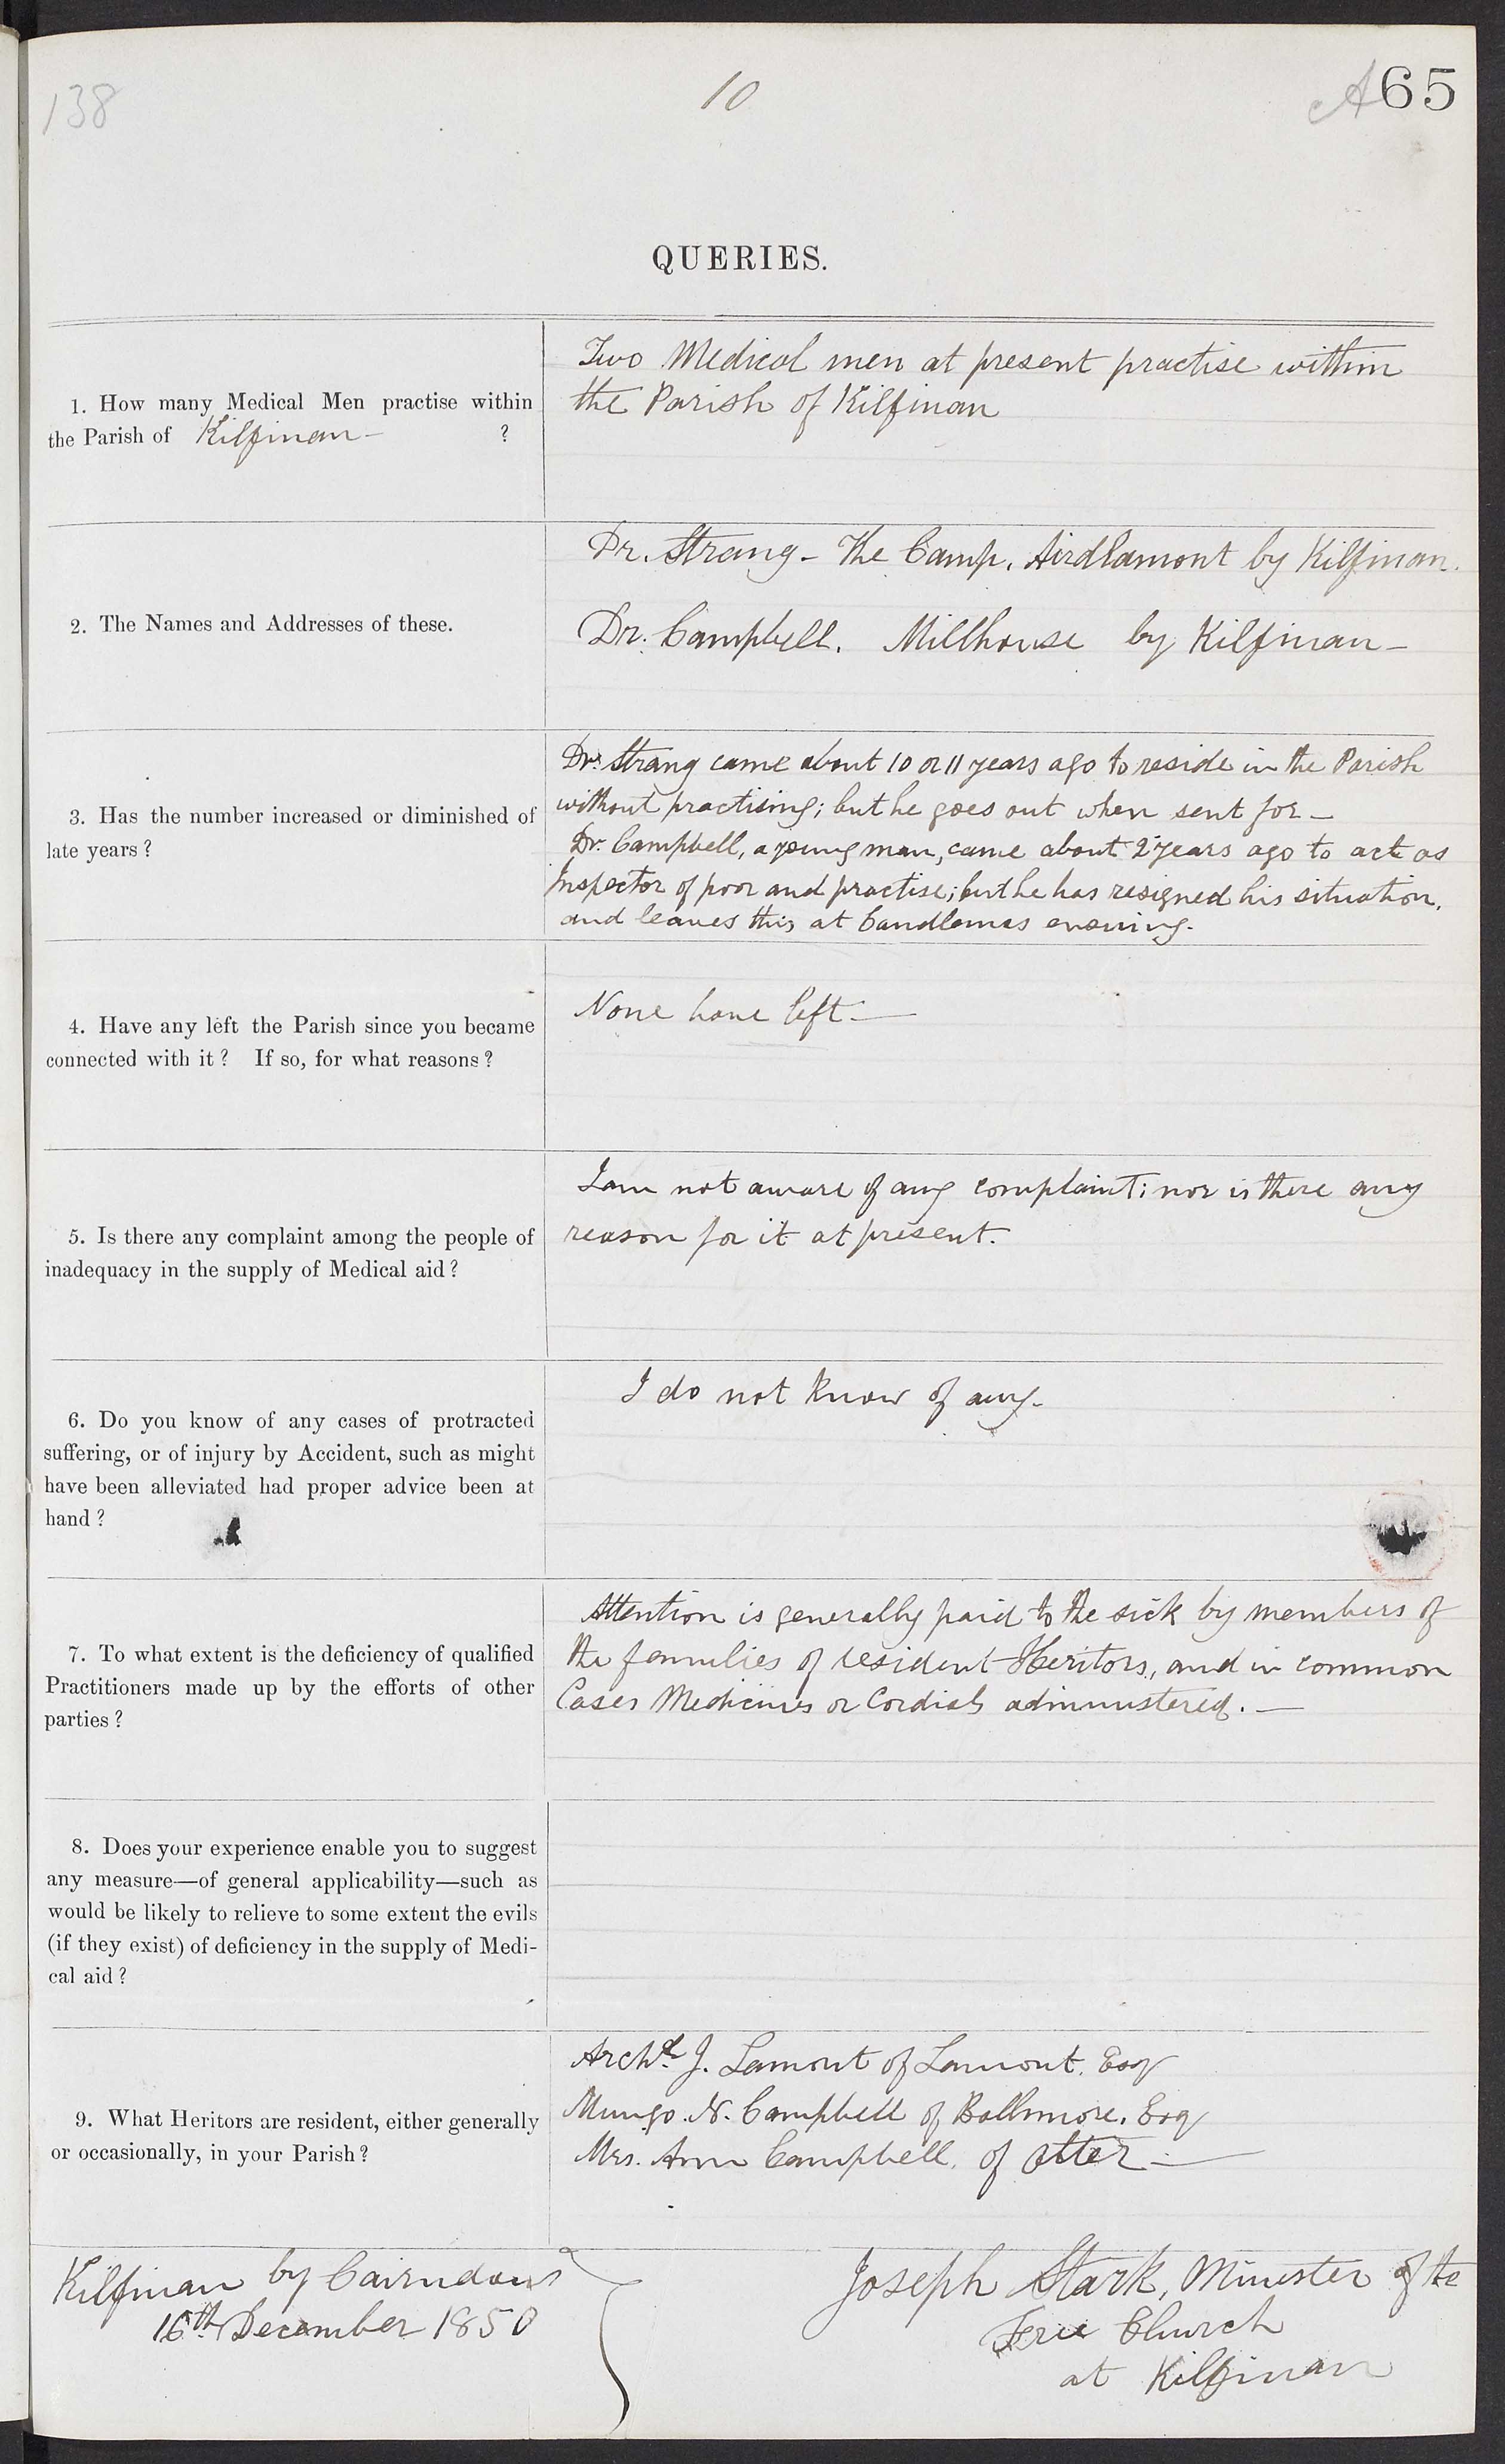 138
10
A65
QUERIES.
1. How many Medical Men practise within
the Parish of Kilfinan- ?
Two Medical men at present practise within
the Parish of Kilfinan
2. The Names and Addresses of these.
Dr. Strang - The Camp, Airdlamont by Kilfinan.
Dr. Campbell. Millhouse by Kilfinan -
3. Has the number increased or diminished of
late years?
Dr. Strang came about 10 or 11 years ago to reside in the Parish
without practising; but he goes out when sent for -
Dr. Campbell, a young man, came about 2 years ago to act as
Inspector of poor and practise; but he has resigned his situation,
and leaves this at Candlemas ensuing.
4. Have any left the Parish since you became
connected with it? If so, for what reasons?
None have left —
5. Is there any complaint among the people of
inadequacy in the supply of Medical aid?
I am not aware of any complaint; nor is there any
reason for it at present.
6. Do you know of any cases of protracted
suffering, or of injury by Accident, such as might
have been alleviated had proper advice been at
hand?
I do not know of any.
7. To what extent is the deficiency of qualified
Practitioners made up by the efforts of other
parties?
Attention is generally paid to the sick by members of
the families of resident Heritors, and in common
Cases Medicines or Cordials administered. —
8. Does your experience enable you to suggest
any measure—of general applicability—such as
would be likely to relieve to some extent the evils
(if they exist) of deficiency in the supply of Medi-
cal aid?
9. What Heritors are resident, either generally
or occasionally, in your Parish?
Archd. J. Lamont of Lamont. Esqr
Mungo. N. Campbell of Ballimore. Esq
Mrs. Ann Campbell. of Otter —
Kilfinan by Cairndow
16th December 1850
Joseph Stark, Minister of the
Free Church
at Kilfinan